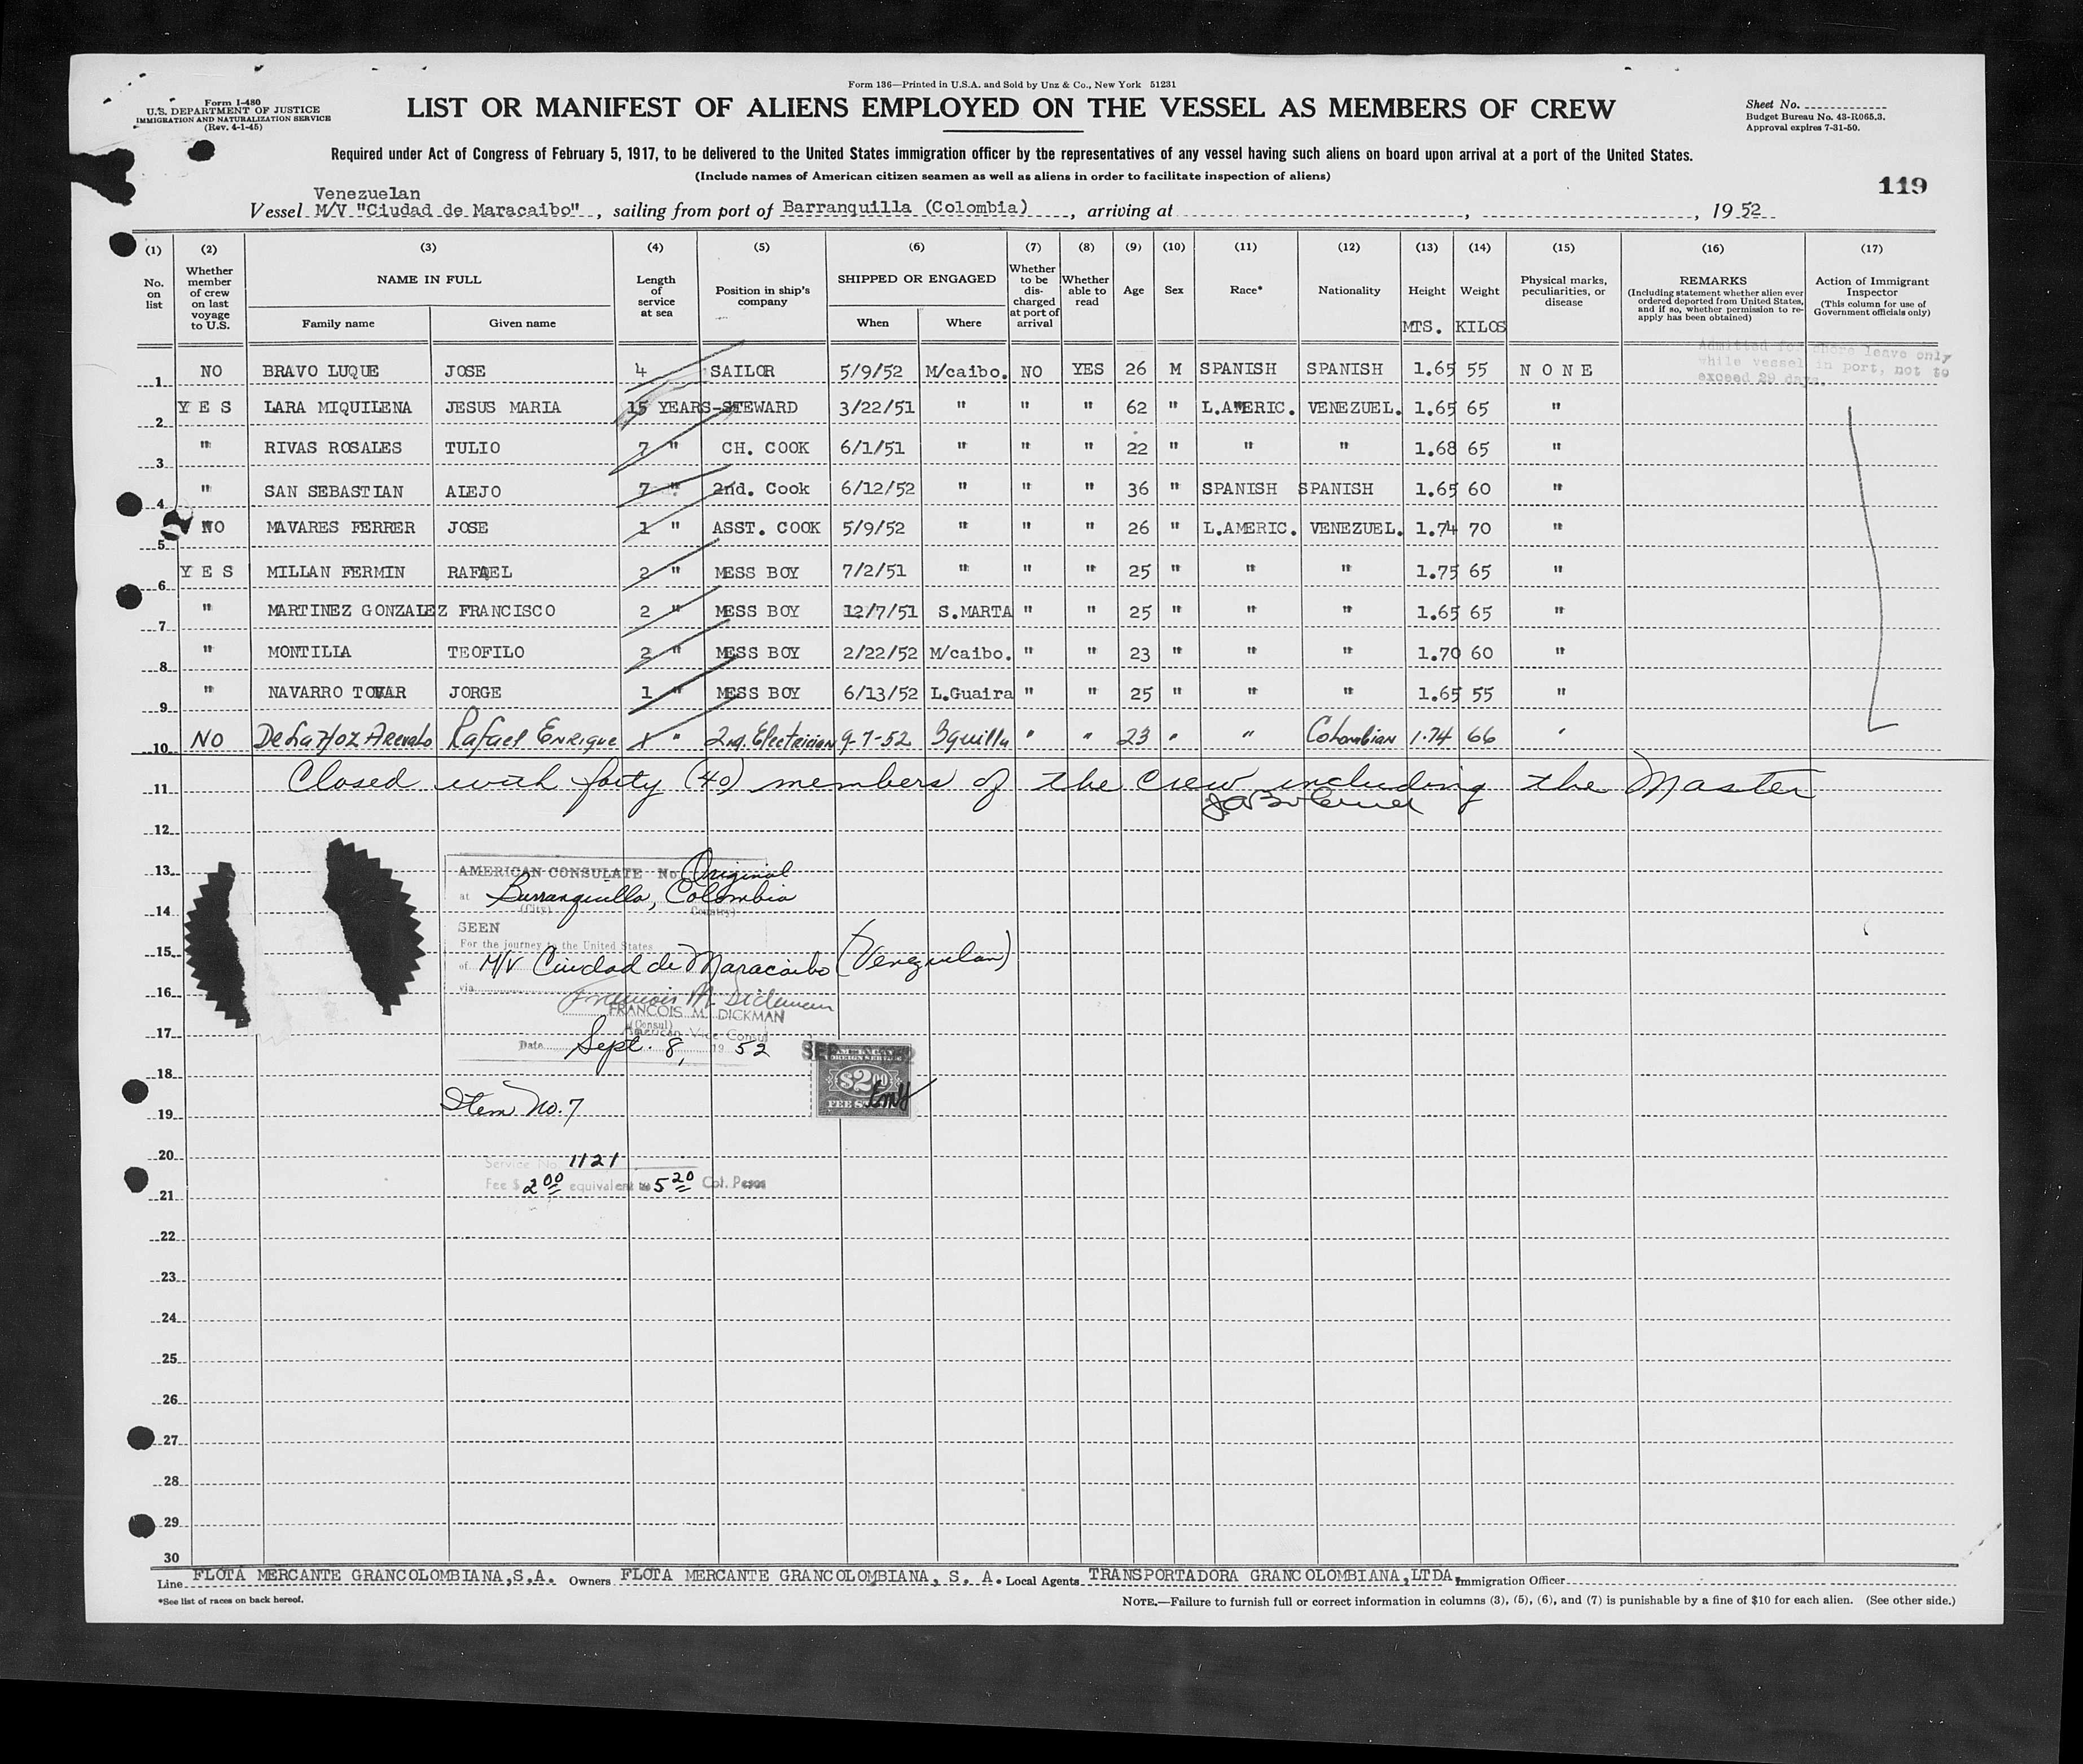 Form 136—Printed in U.S.A. and Sold by Unz & Co., New York 51231
Form I-480
U.S. DEPARTMENT OF JUSTICE
IMMIGRATION AND NATURALIZATION SERVICE
(Rev. 4-1-45)
LIST OR MANIFEST OF ALIENS EMPLOYED ON THE VESSEL AS MEMBERS OF CREW
Sheet No.
Budget Bureau No. 43-R065.3.
Approval expires 7-31-50.
Required under Act of Congress of February 5, 1917, to be delivered to the United States immigration officer by the representatives of any vessel having such aliens on board upon arrival at a port of the United States.
(Include names of American citizen seamen as well as aliens in order to facilitate inspection of aliens)
119
Venezuelan
Vessel M/V "Ciudad de Maracaibo", sailing from port of Barranquilla (Colombia), arriving at , , 1952
(1) (2) (3) (4) (5) (6) (7) (8) (9) (10) (11) (12) (13) (14) (15) (16) (17)
No. on list
Whether member of crew on last voyage to U.S.
NAME IN FULL
Family name Given name
Length of service at sea
Position in ship's company
SHIPPED OR ENGAGED
When Where
Whether to be discharged at port of arrival
Whether able to read
Age
Sex
Race*
Nationality
Height MTS.
Weight KILOS
Physical marks, peculiarities, or disease
REMARKS
(Including statement whether alien ever ordered deported from United States, and if so, whether permission to re-apply has been obtained)
Action of Immigrant Inspector
(This column for use of Government officials only)
Admitted for shore leave only
while vessel in port, not to
exceed 29 days.
1 NO BRAVO LUQUE JOSE 4 SAILOR 5/9/52 M/caibo. NO YES 26 M SPANISH SPANISH 1.65 55 NONE
2 YES LARA MIQUILENA JESUS MARIA 15 YEARS-STEWARD 3/22/51 " " " 62 " L.AMERIC. VENEZUEL. 1.65 65 "
3 " RIVAS ROSALES TULIO 7 " CH. COOK 6/1/51 " " " 22 " " " 1.68 65 "
4 " SAN SEBASTIAN ALEJO 7 " 2nd. Cook 6/12/52 " " " 36 " SPANISH SPANISH 1.65 60 "
5 NO MAVARES FERRER JOSE 1 " ASST. COOK 5/9/52 " " " 26 " L.AMERIC. VENEZUEL. 1.74 70 "
6 YES MILLAN FERMIN RAFAEL 2 " MESS BOY 7/2/51 " " " 25 " " " 1.75 65 "
7 " MARTINEZ GONZALEZ FRANCISCO 2 " MESS BOY 12/7/51 S.MARTA " " 25 " " " 1.65 65 "
8 " MONTILLA TEOFILO 2 " MESS BOY 2/22/52 M/caibo. " " 23 " " " 1.70 60 "
9 " NAVARRO TOVAR JORGE 1 " MESS BOY 6/13/52 L.Guaira " " 25 " " " 1.65 55 "
10 NO De La Hoz Arevalo Rafael Enrique 1 " 2nd. Electrician 9-7-52 Bquilla " " 23 " " Colombian 1.74 66 "
11 Closed with forty (40) members of the crew including the Master
12
13
14
15
16
17
18
19
20
21
22
23
24
25
26
27
28
29
30
AMERICAN CONSULATE No. Original
at Barranquilla, Colombia
(City) (Country)
SEEN
For the journey to the United States
of M/V Ciudad de Maracaibo (Venezuelan)
via
Francois M. Dickman
FRANCOIS M. DICKMAN
(Consul)
American Vice Consul
Date Sept. 8, 1952
SEP
AMERICAN
FOREIGN SERVICE
$2.00
FEE STAMP
Item No. 7
Service No. 1121
Fee $ 2.00 equivalent to 5.20 Col. Pesos
Line FLOTA MERCANTE GRANCOLOMBIANA,S.A. Owners FLOTA MERCANTE GRANCOLOMBIANA, S. A. Local Agents TRANSPORTADORA GRANCOLOMBIANA,LTDA. Immigration Officer
*See list of races on back hereof.
NOTE.—Failure to furnish full or correct information in columns (3), (5), (6), and (7) is punishable by a fine of $10 for each alien. (See other side.)